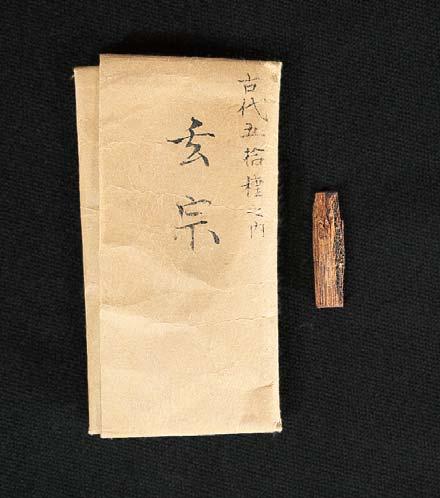 古代五拾種之内
玄宗